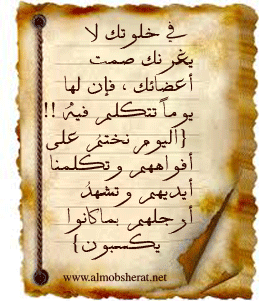 في خلوتك لا
يغرنك صمت
أعضائك ، فإن لها
يوماً تتكلم فيه !!
{اليوم نختم على
أفواههم وتكلمنا
أيديهم وتشهد
أرجلهم بماكانوا
يكسبون}
www.almobsherat.net